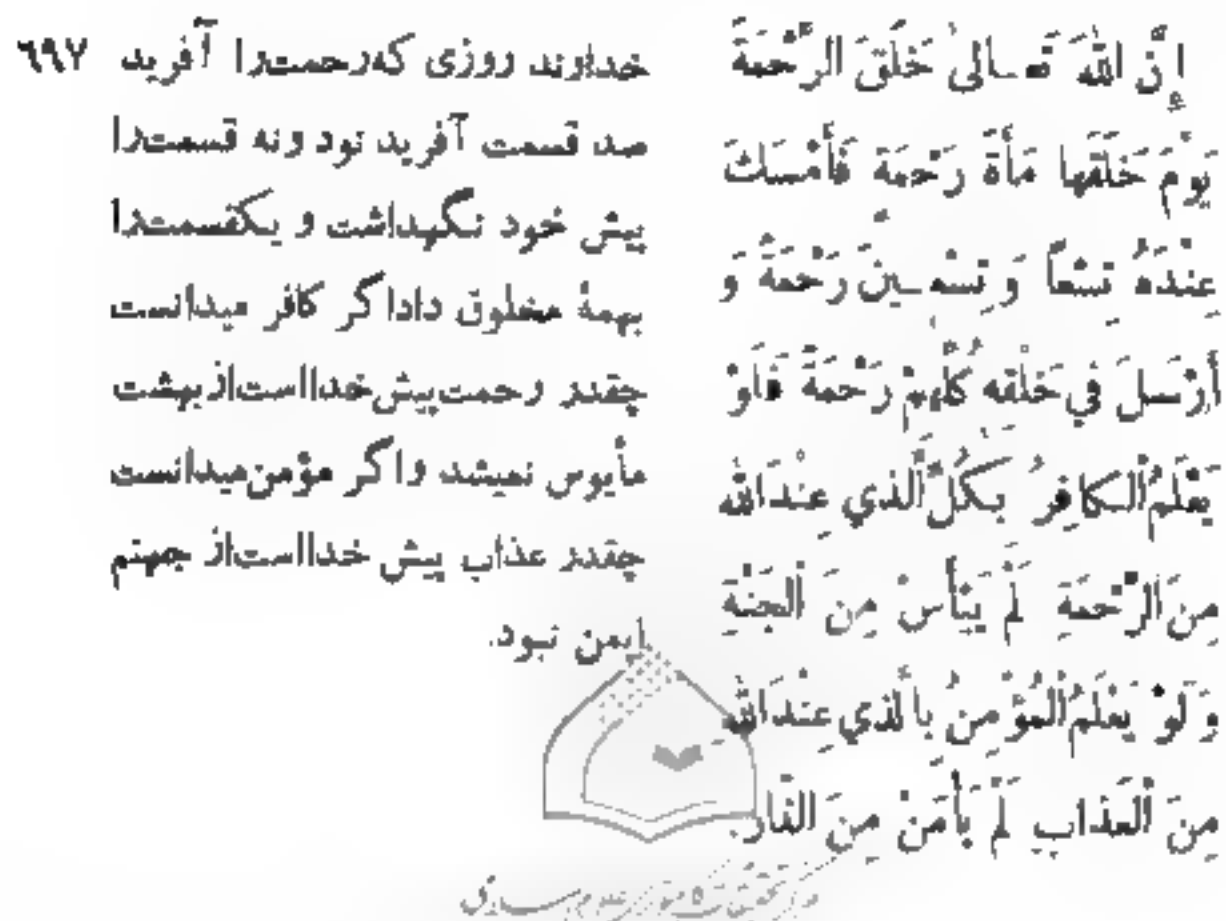 إِنَّ اللّٰهَ تَعـالىٰ خَلَقَ الرَّحْمَةَ
يَوْمَ خَلَقَها مَأةَ رَحْمَةٍ فَأمْسَكَ
عِنْدَهُ تِسْعاً وَ تِسْعـينَ رَحْمَةً وَ
أرْسَلَ في خَلْقِهِ كُلِّهِمْ رَحْمَةً فَلَوْ
يَعْلَمُ الْـكافِرُ بِكُلِّ الَّذي عِنْدَاللّٰهِ
مِنَ الرَّحْمَةِ لَمْ يَيْأسْ مِنَ الْجَنَّةِ
وَ لَوْ يَعْلَمُ الْمُؤْمِنُ بِالَّذي عِنْدَاللّٰهِ
مِنَ الْعَذابِ لَمْ يَأمَنْ مِنَ النّارِ.
خداوند روزی که رحمت را آفرید ٦٩٧
صد قسمت آفرید نود و نه قسمت را
پیش خود نگهداشت و یکقسمت را
بهمهٔ مخلوق داد اگر کافر میدانست
چقدر رحمت پیش خدا است از بهشت
مأیوس نمیشد و اگر مؤمن میدانست
چقدر عذاب پیش خدا است از جهنم
ایمن نبود.